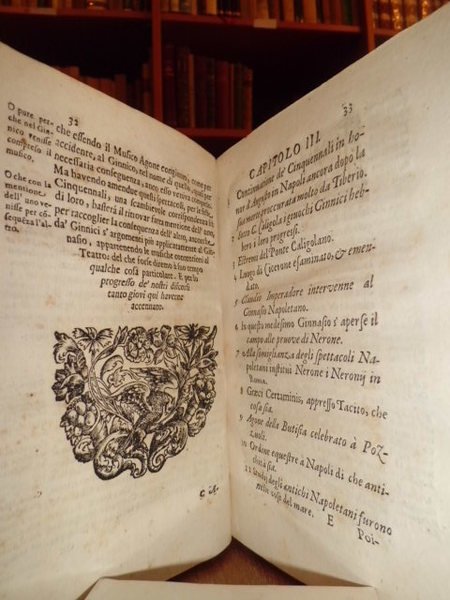 32
O pure, per-
che nel Gin-
nico venisse
compreso il
musico.
O che con la
mentione
dell' uno ve-
nisse per cõ-
sequēza l'al-
tro.
che essendo il Musico Agone compiuto, come per
accidente, al Ginnico, nel nome di questo, quasi per
necessaria conseguenza, anco esso veniva compreso.
Ma havendo amendue questi spettacoli, per le feste
Cinquennali, una scambievole corrispondenza
di loro, basterà il ritrovar farsi mentione dell' uno,
per raccoglier la consequenza dell' altro, ancorche
da' Ginnici s'argomenti più applicatamente al Gin-
nasio, appartenendo le musiche contentioni al
Teatro: del che forse diremo à suo tempo
qualche cosa particolare. E per lo
progresso de' nostri discorsi
tanto giovi qui haverne
accennato.
CA-
33
CAPITOLO III.
1 Continuatione de' Cinquennali in ho-
nor d'Augusto in Napoli ancora dopo la
sua morte procurata molto da Tiberio.
2 Sotto C. Caligola i giuochi Ginnici heb-
bero i loro progressi.
3 Essirensi del Ponte Caligolano.
4 Luogo di Cicerone esaminato, & emen-
dato.
5 Claudio Imperadore intervenne al
Ginnasio Napoletano.
6 In questo medesimo Ginnasio s'aperse il
campo alle pruove di Nerone.
7 Alla somiglianza degli spettacoli Na-
poletani instituì Nerone i Neronij in
Roma.
8 Græci Certaminis, appresso Tacito, che
cosa sia.
9 Agone della Butisia celebrato à Poz-
zuoli.
10 Ordine equestre à Napoli di che anti-
chità sia.
11 Studij degli antichi Napoletani furono
nelle cose del mare.
E
Poi-